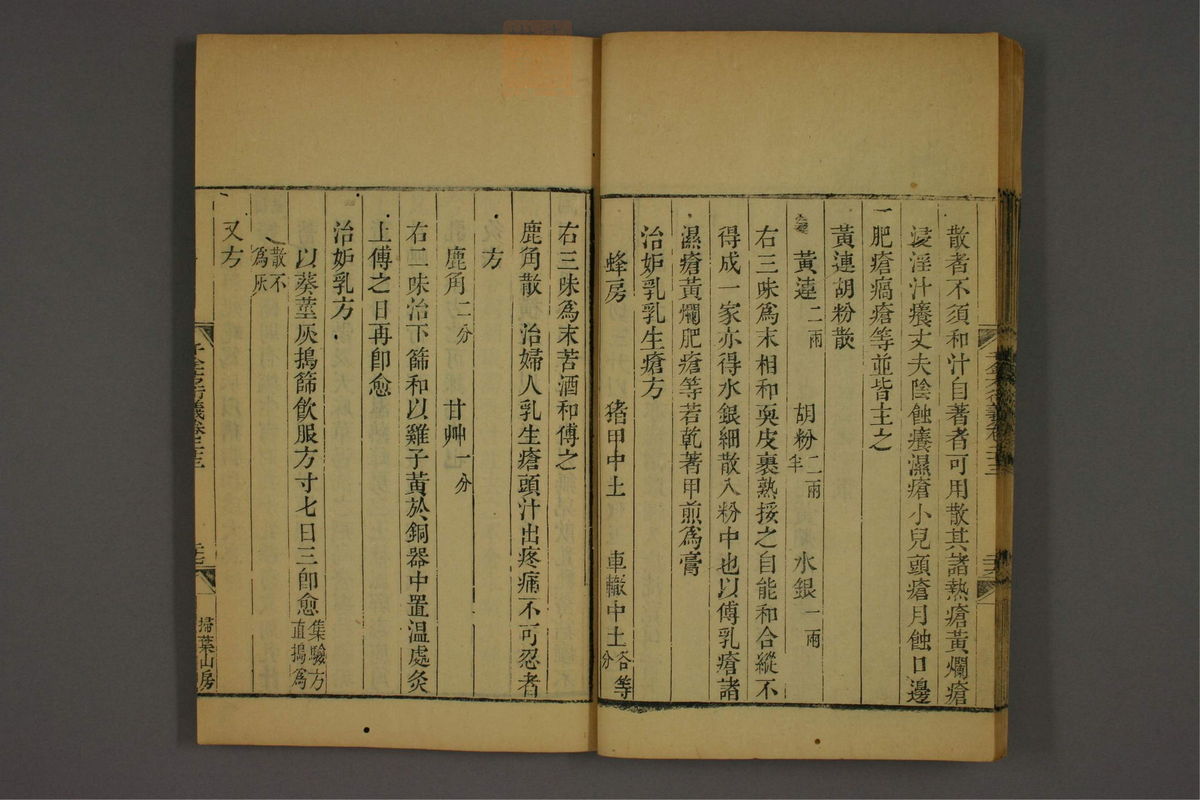 散者不須和汁自著者可用散其諸熱瘡黃爛瘡
浸淫汁癢丈夫陰蝕癢濕瘡小兒頭瘡月蝕口邊
肥瘡瘑瘡等並皆主之
黃連胡粉散
黃連二兩 胡粉二兩半 水銀一兩
右三味爲末相和耎皮裹熟挼之自能和合縱不
得成一家亦得水銀細散入粉中也以傅乳瘡諸
濕瘡黃爛肥瘡等若乾著甲煎爲膏
治妒乳乳生瘡方
蜂房 猪甲中土 車轍中土各等分
右三味爲末苦酒和傅之
鹿角散 治婦人乳生瘡頭汁出疼痛不可忍者
方
鹿角二分 甘艸一分
右二味治下篩和以雞子黃於銅器中置温處炙
上傅之日再卽愈
治妒乳方
以葵莖灰搗篩飲服方寸七日三卽愈集驗方直搗爲
散不爲灰
又方
千金方衍義卷二十三
掃葉山房